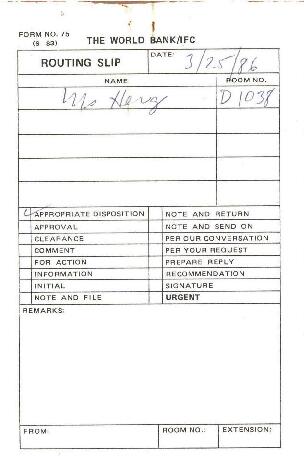 FORM NO. 75
(9 83) THE WORLD BANK/IFC
ROUTING SLIP DATE: 3/25/86
NAME ROOM NO.
Ms Herz D 1038
APPROPRIATE DISPOSITION NOTE AND RETURN
APPROVAL NOTE AND SEND ON
CLEARANCE PER OUR CONVERSATION
COMMENT PER YOUR REQUEST
FOR ACTION PREPARE REPLY
INFORMATION RECOMMENDATION
INITIAL SIGNATURE
NOTE AND FILE URGENT
REMARKS:
FROM: ROOM NO.: EXTENSION: